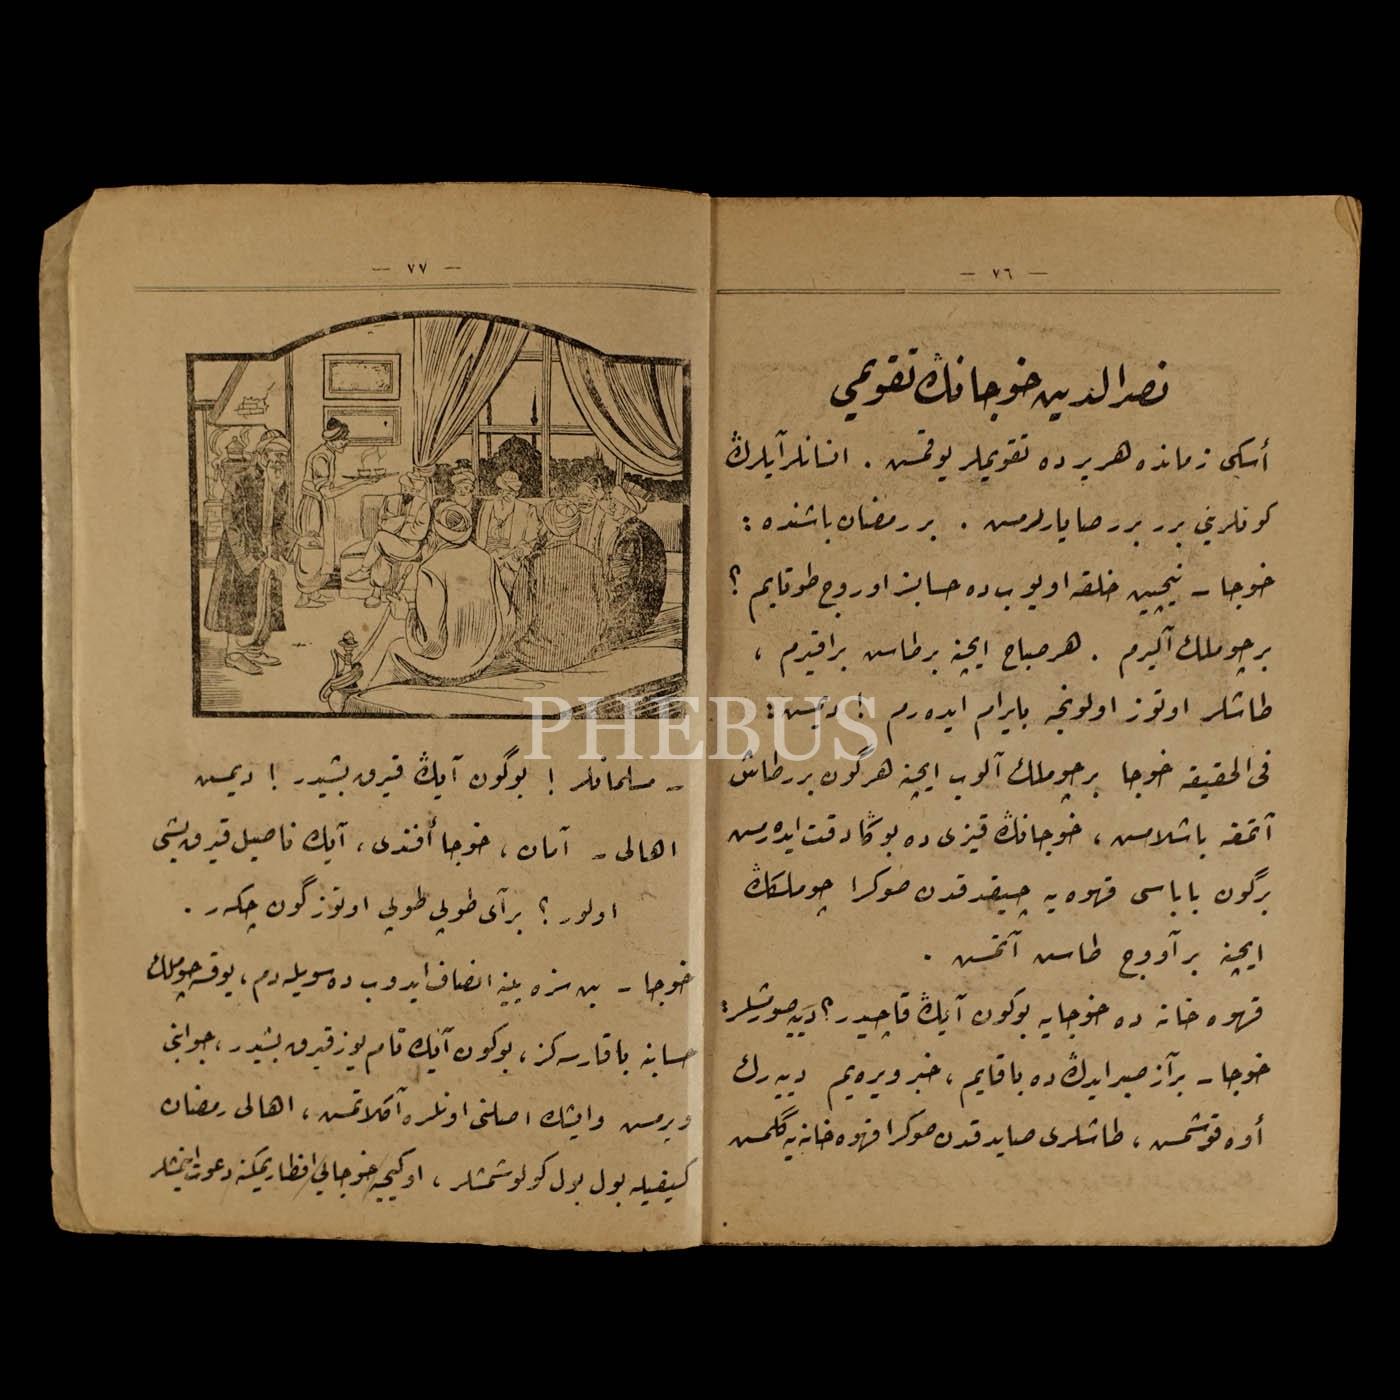 — ٧٦ —
نصرالدين خوجانڭ تقويمى
أسكى زمانده هر يرده تقويملر يوقمش . انسانلر آيلرڭ
كونلرينى برر برر صايارلرمش . بر رمضان باشنده :
خوجا ـ نيچين خلقه اويوب ده حسابسز اوروج طوتايم ؟
بر چوملك آليرم . هر صباح ايچنه بر طاش براقيرم ،
طاشلر اوتوز اولونجه بايرام ايده رم ! ديمش :
فى الحقيقه خوجا بر چوملك آلوب ايچنه هر گون برر طاش
آتمغه باشلامش ، خوجانڭ قيزى ده بوڭا دقت ايدرمش
بر گون باباسى قهوه يه چيقدقدن صوكرا چوملكڭ
ايچنه بر آووج طاش آتمش .
قهوه خانه ده خوجايه بوكون آيڭ قاچيدر ؟ ديه صورمشلر :
خوجا ـ بر آز صبر ايدڭ ده باقايم ، خبر ويره يم دييه رك
أوه قوشمش ، طاشلرى صايدقدن صوكرا قهوه خانه يه گلمش
— ٧٧ —
ـ مسلمانلر ! بوگون آيڭ قيرق بشيدر ! ديمش
اهالى ـ آمان ، خوجا أفندى ، آيڭ ناصيل قيرق بشى
اولور ؟ بر آى طولى طولى اوتوز گون چكر .
خوجا ـ بن سزه ينه انصاف ايدوب ده سويله دم ، يوقسه چوملك
حسابنه باقارسه كز ، بوكون آيڭ تام يوز قيرق بشيدر ، جوابنى
ويرمش وايشك اصلنى اونلره آڭلاتمش ، اهالى رمضان
كيفيله بول بول كولوشمشلر ، او كيجه خوجايى افطار يمكنه دعوت ايتمشلر
PHEBUS